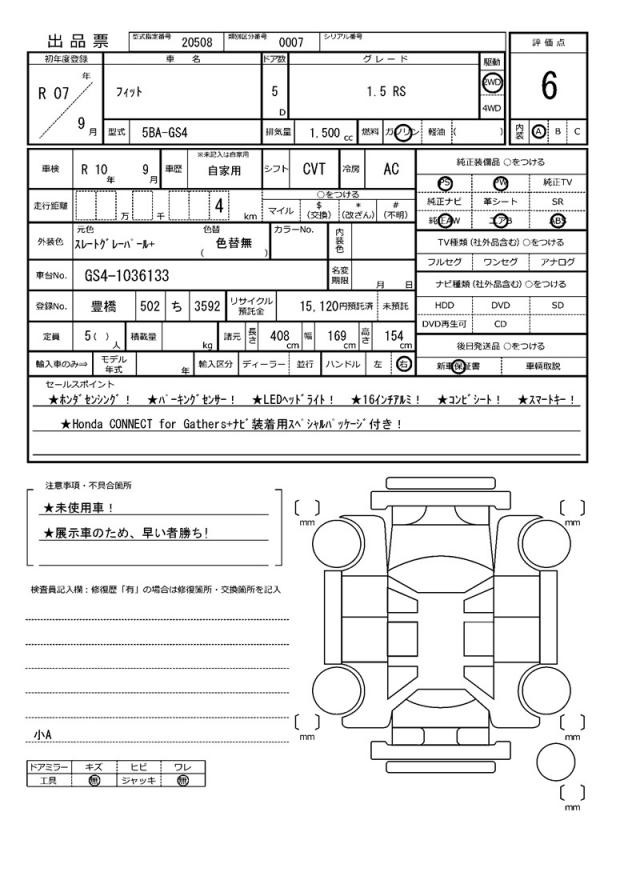 出品票 型式指定番号 20508 類別区分番号 0007 シリアル番号
評価点
初年度登録 車名 ドア数 グレード 駆動
R 07 年 9 月 フィット 5 D 1.5 RS 2WD 4WD 6
型式 5BA-GS4 排気量 1.500 cc 燃料 ガソリン 軽油 ( ) 内装 A B C
車検 R 10 年 9 月 車歴 ※未記入は自家用 自家用 シフト CVT 冷房 AC
純正装備品 ○をつける
PS PW 純正TV
純正ナビ 革シート SR
純正AW エアB ABS
走行距離 万 千 4 km ○をつける
マイル $(交換) *(改ざん) #(不明)
外装色 元色 スレートグレーパール+ 色替 色替無 ( ) カラーNo. 内装色
TV種類 (社外品含む) ○をつける
フルセグ ワンセグ アナログ
車台No. GS4-1036133 名変期限 月 日
ナビ種類 (社外品含む) ○をつける
HDD DVD SD
DVD再生可 CD
登録No. 豊橋 502 ち 3592 リサイクル預託金 15,120円預託済 未預託
定員 5( ) 人 積載量 kg 諸元 長さ 408 cm 幅 169 cm 高さ 154 cm
後日発送品 ○をつける
新車保証書 車輌取説
輸入車のみ⇒ モデル年式 年 輸入区分 ディーラー 並行 ハンドル 左 右
セールスポイント
★ホンダセンシング! ★パーキングセンサー! ★LEDヘッドライト! ★16インチアルミ! ★コンビシート! ★スマートキー!
★Honda CONNECT for Gathers+ナビ装着用スペシャルパッケージ付き!
注意事項・不具合箇所
★未使用車!
★展示車のため、早い者勝ち!
検査員記入欄:修復歴「有」の場合は修復箇所・交換箇所を記入
小A
ドアミラー キズ ヒビ ワレ
工具 無 ジャッキ 無
[ ] mm [ ] mm
[ ] mm [ ] mm
[ ] mm